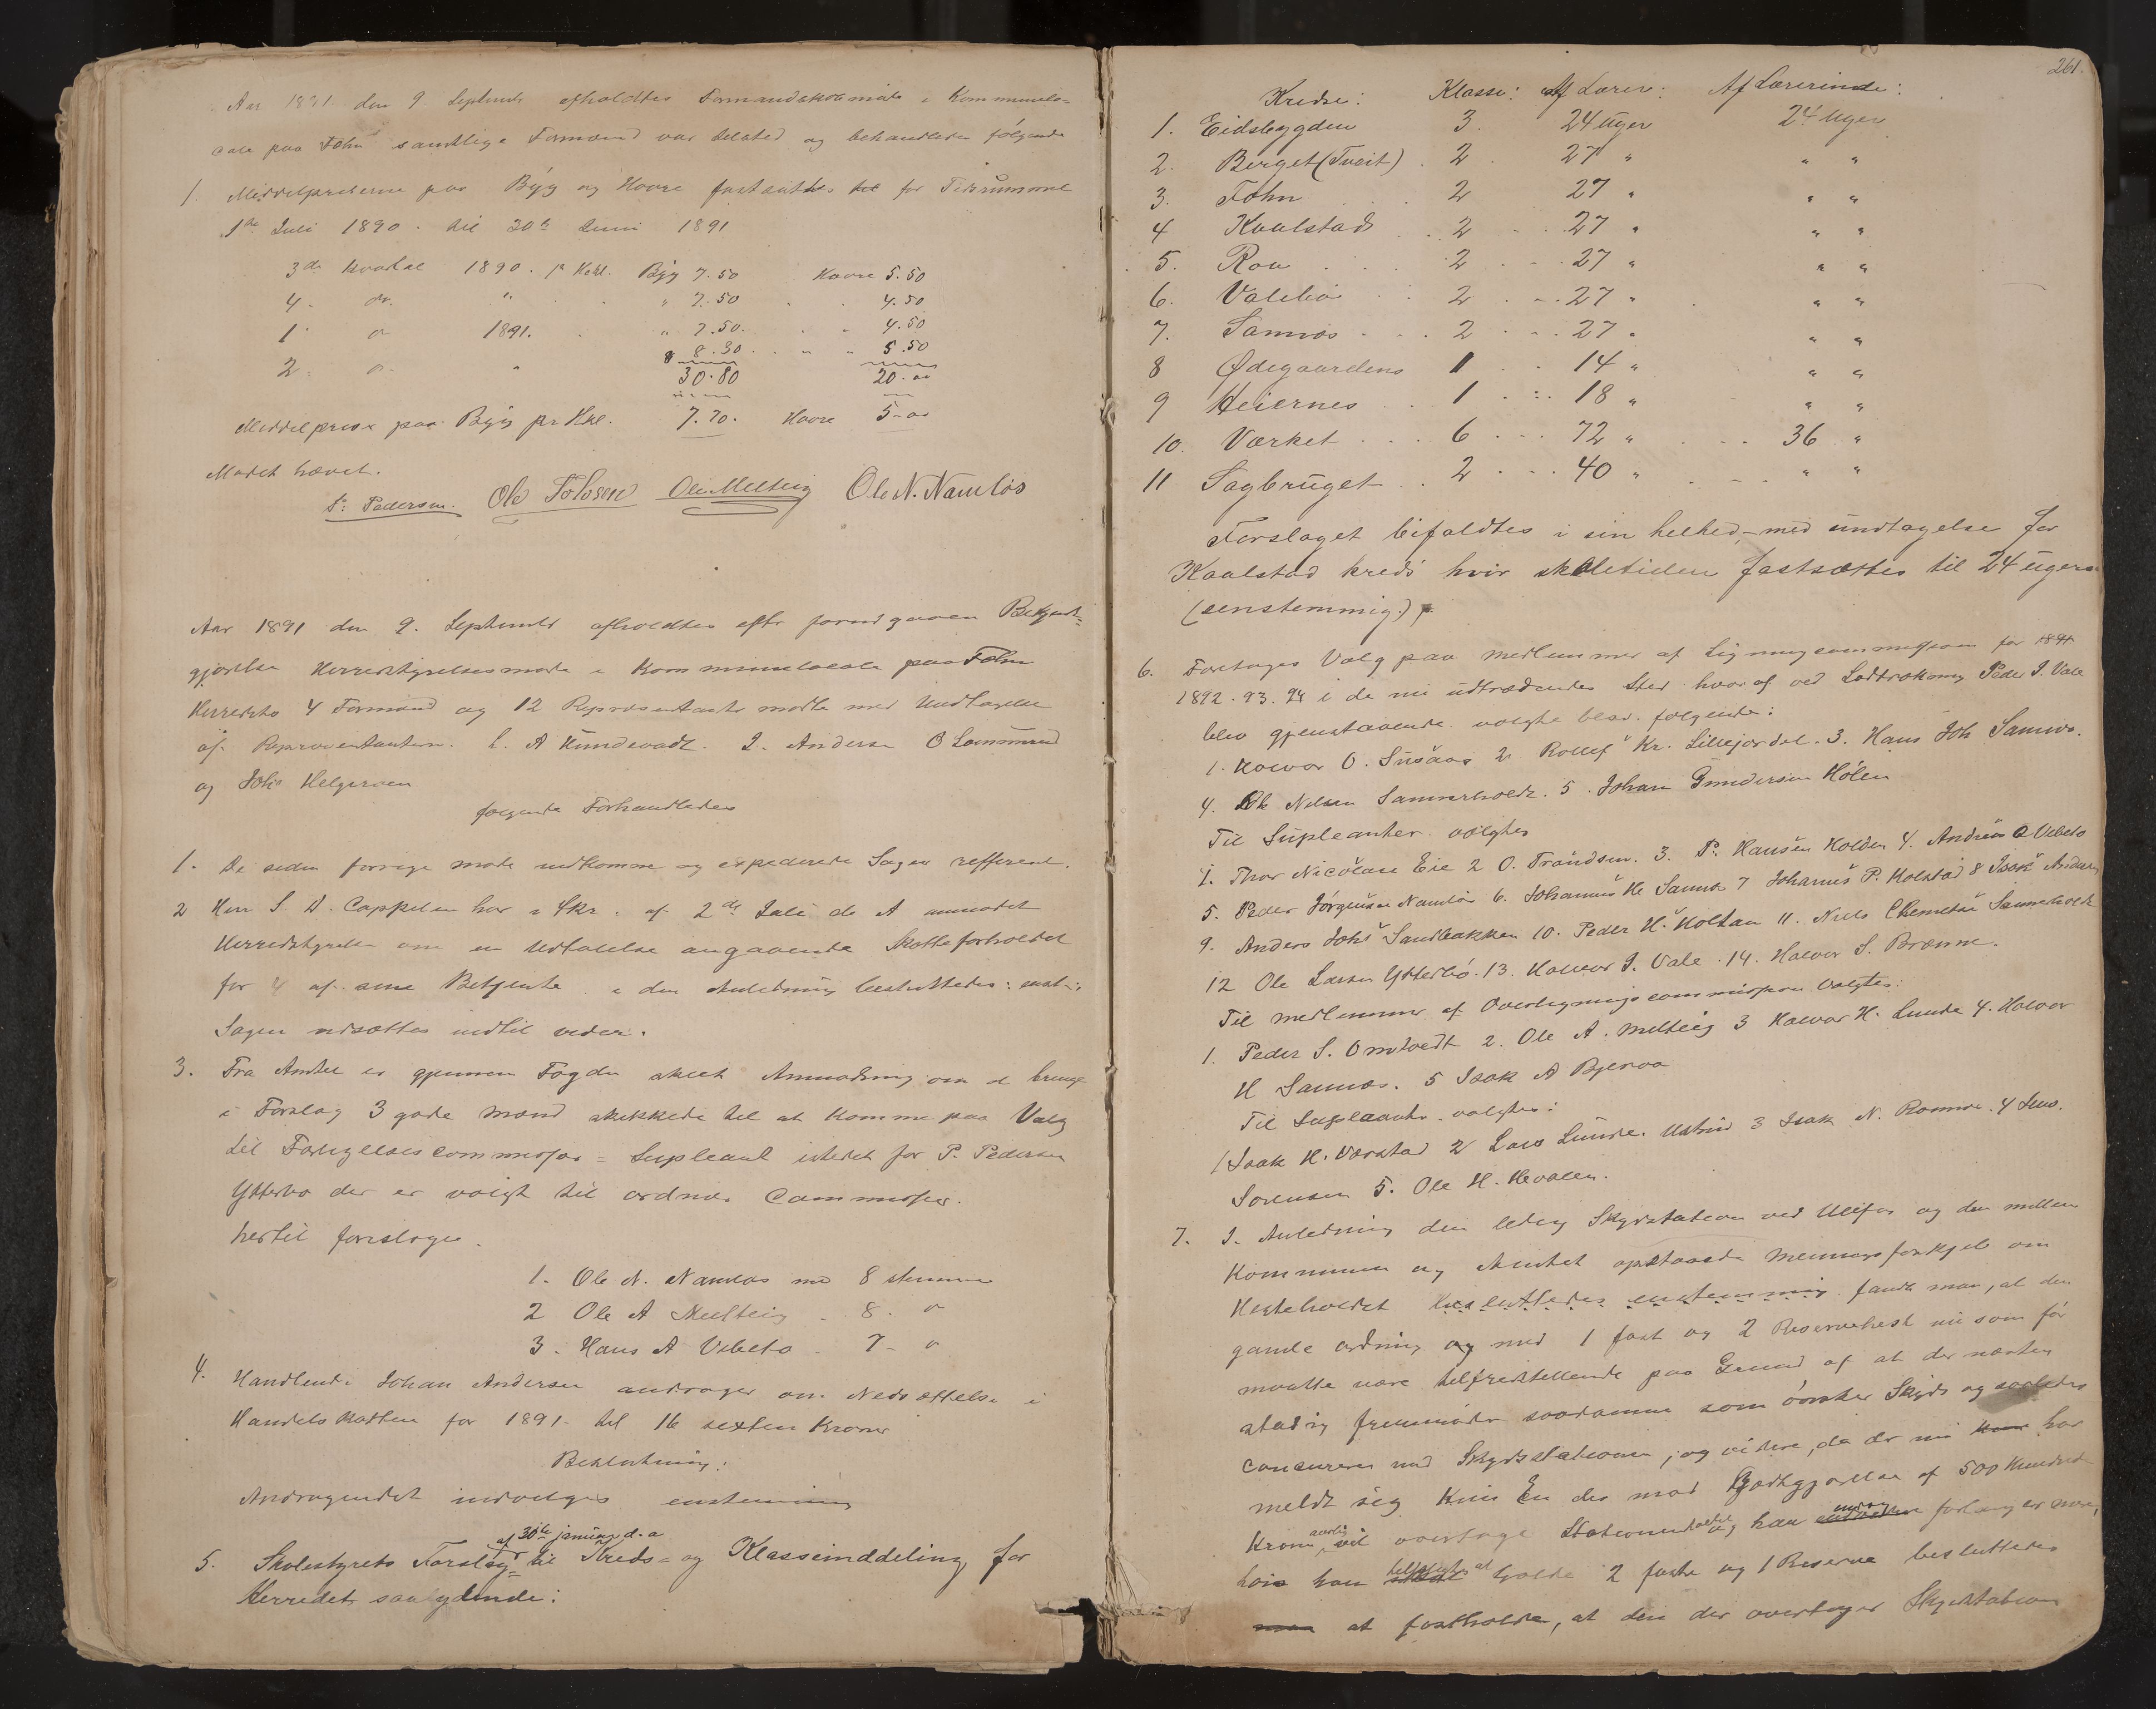 Aar 1891 den 9 Septemb afholdtes Formandskabsmøde i Kommunelo-
cale paa Fåhn samtlige Formænd var tilsted og behandledes følgende
1. Middelpriserne paa Byg og Havre fastsattes for Tidsrummet
1ste Juli 1890 til 30te Juni 1891
3de Kvartal 1890. pr Hekl. Byg 7.50 Havre 5.50
4. do. " " 7.50 4.50
1. do 1891. " 7.50. " 4.50
2. do. " 8.30 " " 5.50
30.80 20.00
Middelprise paa Byg pr Hkl. 7.70. Havre 5-00
Mødet hævet.
P. Pedersen. Ole Tolvsen Ole Melteig Ole N. Namløs
Aar 1891 den 9. Septembr afholdtes efter forudgaaen Bekjendt=
gjørelse Herredstyrelsesmøde i Kommunelocale paa Fåhn
Herredets 4 Formænd og 12 Repræsentanter mødte med Undtagelse
af Repræsentanterne. L. A Kundevadt. I. Andersen O Lammerud
og Johs Helgeroen
følgende Forhandledes
1. De siden forrige møde indkomne og expederede Sager refferert.
2 Herr S. D. Cappelen har i Skr. af 2de Juli d. A anmodet
Herredstyrelsen om en Udtalelse angaaende Skatteforholdet
for 4 af sine Betjente i den Anledning besluttedes: enst.:
Sagen udsættes indtil videre.
3. Fra Amtet er gjennem Fogden skeet Anmodning om at bringe
i Forslag 3 gode Mænd skikkede til at komme paa Valg
til Forligelsescommissær = Supleant istedet for P. Pedersen
Ytterbø der er valgt til ordnær Commissær.
hertil foreslages.
1. Ole N. Namløs med 8 stemmer
2 Ole A Melteig - 8. "
3. Hans A Vibeto - 7 - "
4. Handlende Johan Andersen andrager om Nedsættelse i
Handelskatten for 1891 - til 16 sexten Kroner
Beslutning:
Andragendet indvilges enstemmig
5. Skolestyrets Forslag af 30te januar d. a til Kreds- og Klasseinddeling for
Herredet saalydende:
261.
Kredse: Klasse: Af Lærer: Af Lærerinde:
1. Eidsbygden 3. 24 Uger 24 Uger
2. Berget (Tveit) . 2 . 27 " " "
3. Fåhn 2 27 " " "
4 Kaalstad . . 2 . . 27 " " "
5. Roa . . . 2 . - . 27 " " "
6. Valebø . . 2 . - . 27 " " "
7. Sannæs . . . 2 . . . 27 " " "
8 Ødegaardens 1 . . 14 " " "
9 Heiernes . . 1 . . . 18 " " "
10. Værket . . . . 6 . . . 72 " . . . 36 "
11 Sagbruget . . 2 . . . 40 " . . . " "
Forslaget bifaldtes i sin helhed, - med undtagelse for
Kaalstad kreds hvor skoletiden fastsættes til 24 ugers
(eenstemmig.)
6. Foretages Valg paa medlemmer af Ligningscommission for 1891
1892. 93. 94 i de nu udtrædendes Sted hvoraf ved Lodtrækning Peder I. Vale
blev gjenstaaende. valgte blev følgende:
1. Halvor O. Snsaas 2 Rollef Kr. Lillejordet. 3. Hans Joh Sannæs.
4. Ole Nilsen Sannerholdt. 5. Johan Gundersen Hølen
Til Supleanter valgtes
1. Thor Nicolaie Eie 2 O. Trandsen. 3. P. Hansen Holden 4. Andreas O Vibeto
5. Peder Jørgensen Namløs 6. Johannes H. Sannæs 7 Johannes P. Holstad 8 Isak Andersen
9. Anders Johs Sandbakken 10. Peder H. Holtan 11. Niels Clemetse Sannerholdt
12 Ole Larsen Ytterbø. 13. Halvor I. Vale. 14. Halvor S. Brænne.
Til medlemmer af Overligningscommission valgtes:
1. Peder S. Omtvedt 2. Ole A. Melteig 3 Halvor H. Lunde 4. Halvor
H Sannæs. 5 Isak A Bjerva
Til Supleanter valgtes:
1 Isak H. Værstad 2 Lars Lunde. 3 Isak N. Romnæs. 4
Sørensen 5. Ole H. Hevalen.
7. I Anledning den ledig Skydsstation ved Ulefos og den mellem
Kommunen og Amtet opstaaede Meningsforskjel om
Hesteholdet besluttedes enstemmig fandt man, at den
gamle ordning og med 1 fast og 2 Reservehest nu som før
maatte være tilfredstillende paa Grund af at der næsten
stadig fremmøder saadanne som ønsker Skyds og saaledes
concurrerer med Skydsstationen, og videre, da der nu kun har
meldt sig kun En der mod Godtgjørelse af 500 Hundrede
Kroner aarlig vil overtage Stationen og han forlanger mere,
hvis han tilpligtes at holde 2 faste og 1 Reserve besluttedes
man at fastholde, at den der overtager Skydsstation